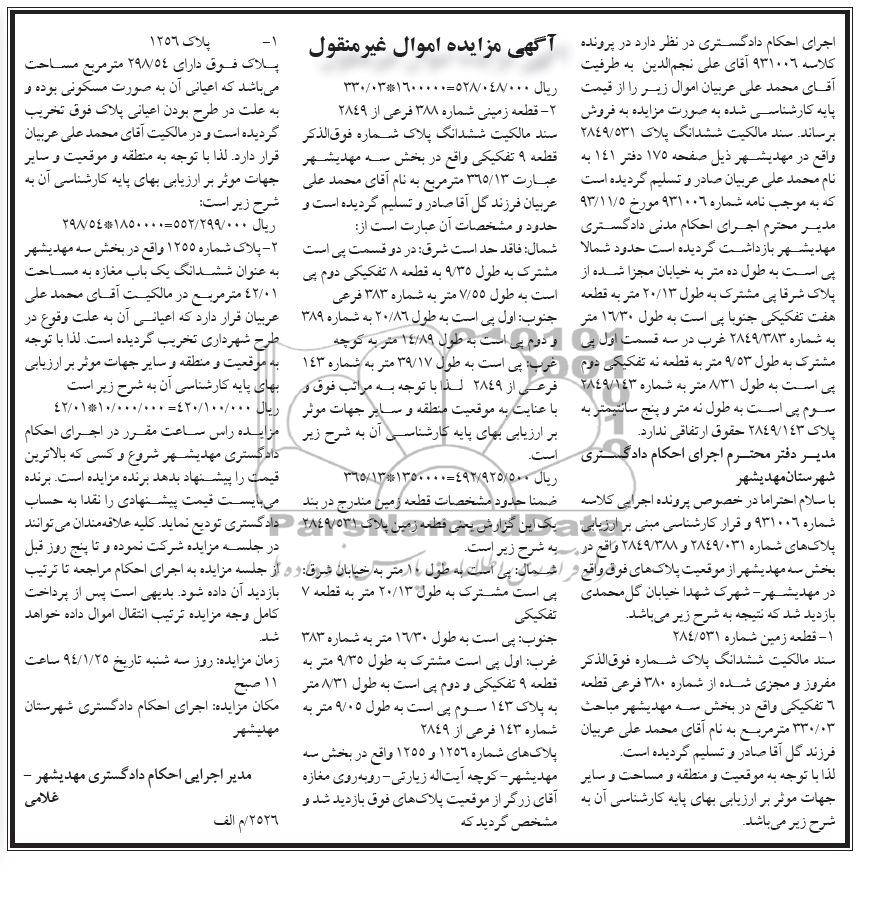 آگهی مزایده اموال غیرمنقول
اجرای احکام دادگستری در نظر دارد در پرونده
کلاسه ۹۳۱۰۰۶ آقای علی نجم‌الدین به طرفیت
آقای محمد علی عربیان اموال زیر را از قیمت
پایه کارشناسی شده به صورت مزایده به فروش
برساند. سند مالکیت ششدانگ پلاک ۲۸۴۹/۵۳۱
واقع در مهدیشهر ذیل صفحه ۱۷۵ دفتر ۱۴۱ به
نام محمد علی عربیان صادر و تسلیم گردیده است
که به موجب نامه شماره ۹۳۱۰۰۶ مورخ ۹۳/۱۱/۵
مدیر محترم اجرای احکام مدنی دادگستری
مهدیشهر بازداشت گردیده است حدود شمالا
پی است به طول ده متر به خیابان مجزا شده از
پلاک شرقا پی مشترک به طول ۲۰/۱۳ متر به قطعه
هفت تفکیکی جنوبا پی است به طول ۱۶/۳۰ متر
به شماره ۲۸۴۹/۳۸۳ غرب در سه قسمت اول پی
مشترک به طول ۹/۵۳ متر به قطعه نه تفکیکی دوم
پی است به طول ۸/۳۱ متر به شماره ۲۸۴۹/۱۴۳
سوم پی است به طول نه متر و پنج سانتیمتر به
پلاک ۲۸۴۹/۱۴۳ حقوق ارتفاقی ندارد.
مدیر دفتر محترم اجرای احکام دادگستری
شهرستان‌مهدیشهر
با سلام احتراما در خصوص پرونده اجرایی کلاسه
شماره ۹۳۱۰۰۶ و قرار کارشناسی مبنی بر ارزیابی
پلاک‌های شماره ۲۸۴۹/۰۳۱ و ۲۸۴۹/۳۸۸ واقع در
بخش سه مهدیشهر از موقعیت پلاک‌های فوق واقع
در مهدیشهر- شهرک شهدا خیابان گل‌محمدی
بازدید شد که نتیجه به شرح زیر می‌باشد.
۱- قطعه زمین شماره ۲۸۴/۵۳۱
سند مالکیت ششدانگ پلاک شماره فوق‌الذکر
مفروز و مجزی شده از شماره ۳۸۰ فرعی قطعه
۶ تفکیکی واقع در بخش سه مهدیشهر مباحث
۳۳۰/۰۳ مترمربع به نام آقای محمد علی عربیان
فرزند گل آقا صادر و تسلیم گردیده است.
لذا با توجه به موقعیت و منطقه و مساحت و سایر
جهات موثر بر ارزیابی بهای پایه کارشناسی آن به
شرح زیر می‌باشد.
ریال ۵۲۸/۰۴۸/۰۰۰=۱۶۰۰۰۰۰*۳۳۰/۰۳
۲- قطعه زمینی شماره ۳۸۸ فرعی از ۲۸۴۹
سند مالکیت ششدانگ پلاک شماره فوق‌الذکر
قطعه ۹ تفکیکی واقع در بخش سه مهدیشهر
عبارت ۳۶۵/۱۳ مترمربع به نام آقای محمد علی
عربیان فرزند گل آقا صادر و تسلیم گردیده است و
حدود و مشخصات آن عبارت است از:
شمال: فاقد حد است شرق: در دو قسمت پی است
مشترک به طول ۹/۳۵ به قطعه ۸ تفکیکی دوم پی
است به طول ۷/۵۵ متر به شماره ۳۸۳ فرعی
جنوب: اول پی است به طول ۲۰/۸۶ به شماره ۳۸۹
و دوم پی است به طول ۱۴/۸۹ متر به کوچه
غرب: پی است به طول ۳۹/۱۷ متر به شماره ۱۴۳
فرعی از ۲۸۴۹ لذا با توجه به مراتب فوق و
با عنایت به موقعیت منطقه و سایر جهات موثر
بر ارزیابی بهای پایه کارشناسی آن به شرح زیر
است.
ریال ۴۹۲/۹۲۵/۵۰۰=۱۳۵۰۰۰۰*۳۶۵/۱۳
ضمنا حدود مشخصات قطعه زمین مندرج در بند
یک این گزارش یعنی قطعه زمین پلاک ۲۸۴۹/۵۳۱
به شرح زیر است.
شمال: پی است به طول ۱۰ متر به خیابان شرق:
پی است مشترک به طول ۲۰/۱۳ متر به قطعه ۷
تفکیکی
جنوب: پی است به طول ۱۶/۳۰ متر به شماره ۳۸۳
غرب: اول پی است مشترک به طول ۹/۳۵ متر به
قطعه ۹ تفکیکی و دوم پی است به طول ۸/۳۱ متر
به پلاک ۱۴۳ سوم پی است به طول ۹/۰۵ متر به
شماره ۱۴۳ فرعی از ۲۸۴۹
پلاک‌های شماره ۱۲۵۶ و ۱۲۵۵ واقع در بخش سه
مهدیشهر- کوچه آیت‌اله زیارتی- روبه‌روی مغازه
آقای زرگر از موقعیت پلاک‌های فوق بازدید شد و
مشخص گردید که
۱- پلاک ۱۲۵۶
پلاک فوق دارای ۲۹۸/۵۴ مترمربع مساحت
می‌باشد که اعیانی آن به صورت مسکونی بوده و
به علت در طرح بودن اعیانی پلاک فوق تخریب
گردیده است و در مالکیت آقای محمد علی عربیان
قرار دارد. لذا با توجه به منطقه و موقعیت و سایر
جهات موثر بر ارزیابی بهای پایه کارشناسی آن به
شرح زیر است:
ریال ۵۵۲/۲۹۹/۰۰۰=۱۸۵۰۰۰۰*۲۹۸/۵۴
۲- پلاک شماره ۱۲۵۵ واقع در بخش سه مهدیشهر
به عنوان ششدانگ یک باب مغازه به مساحت
۴۲/۰۱ مترمربع در مالکیت آقای محمد علی
عربیان قرار دارد که اعیانی آن به علت وقوع در
طرح شهرداری تخریب گردیده است. لذا با توجه
به موقعیت و منطقه و سایر جهات موثر بر ارزیابی
بهای پایه کارشناسی آن به شرح زیر است
ریال ۴۲۰/۱۰۰/۰۰۰=۱۰/۰۰۰/۰۰۰*۴۲/۰۱
مزایده راس ساعت مقرر در اجرای احکام
دادگستری مهدیشهر شروع و کسی که بالاترین
قیمت را پیشنهاد بدهد برنده مزایده است. برنده
می‌بایست قیمت پیشنهادی را نقدا به حساب
دادگستری تودیع نماید. کلیه علاقه‌مندان می‌توانند
در جلسه مزایده شرکت نموده و تا پنج روز قبل
از جلسه مزایده به اجرای احکام مراجعه تا ترتیب
بازدید آن داده شود. بدیهی است پس از پرداخت
کامل وجه مزایده ترتیب انتقال اموال داده خواهد
شد.
زمان مزایده: روز سه شنبه تاریخ ۹۴/۱/۲۵ ساعت
۱۱ صبح
مکان مزایده: اجرای احکام دادگستری شهرستان
مهدیشهر
مدیر اجرایی احکام دادگستری مهدیشهر –
غلامی
۲۵۲۶/م الف
ParsNamadData